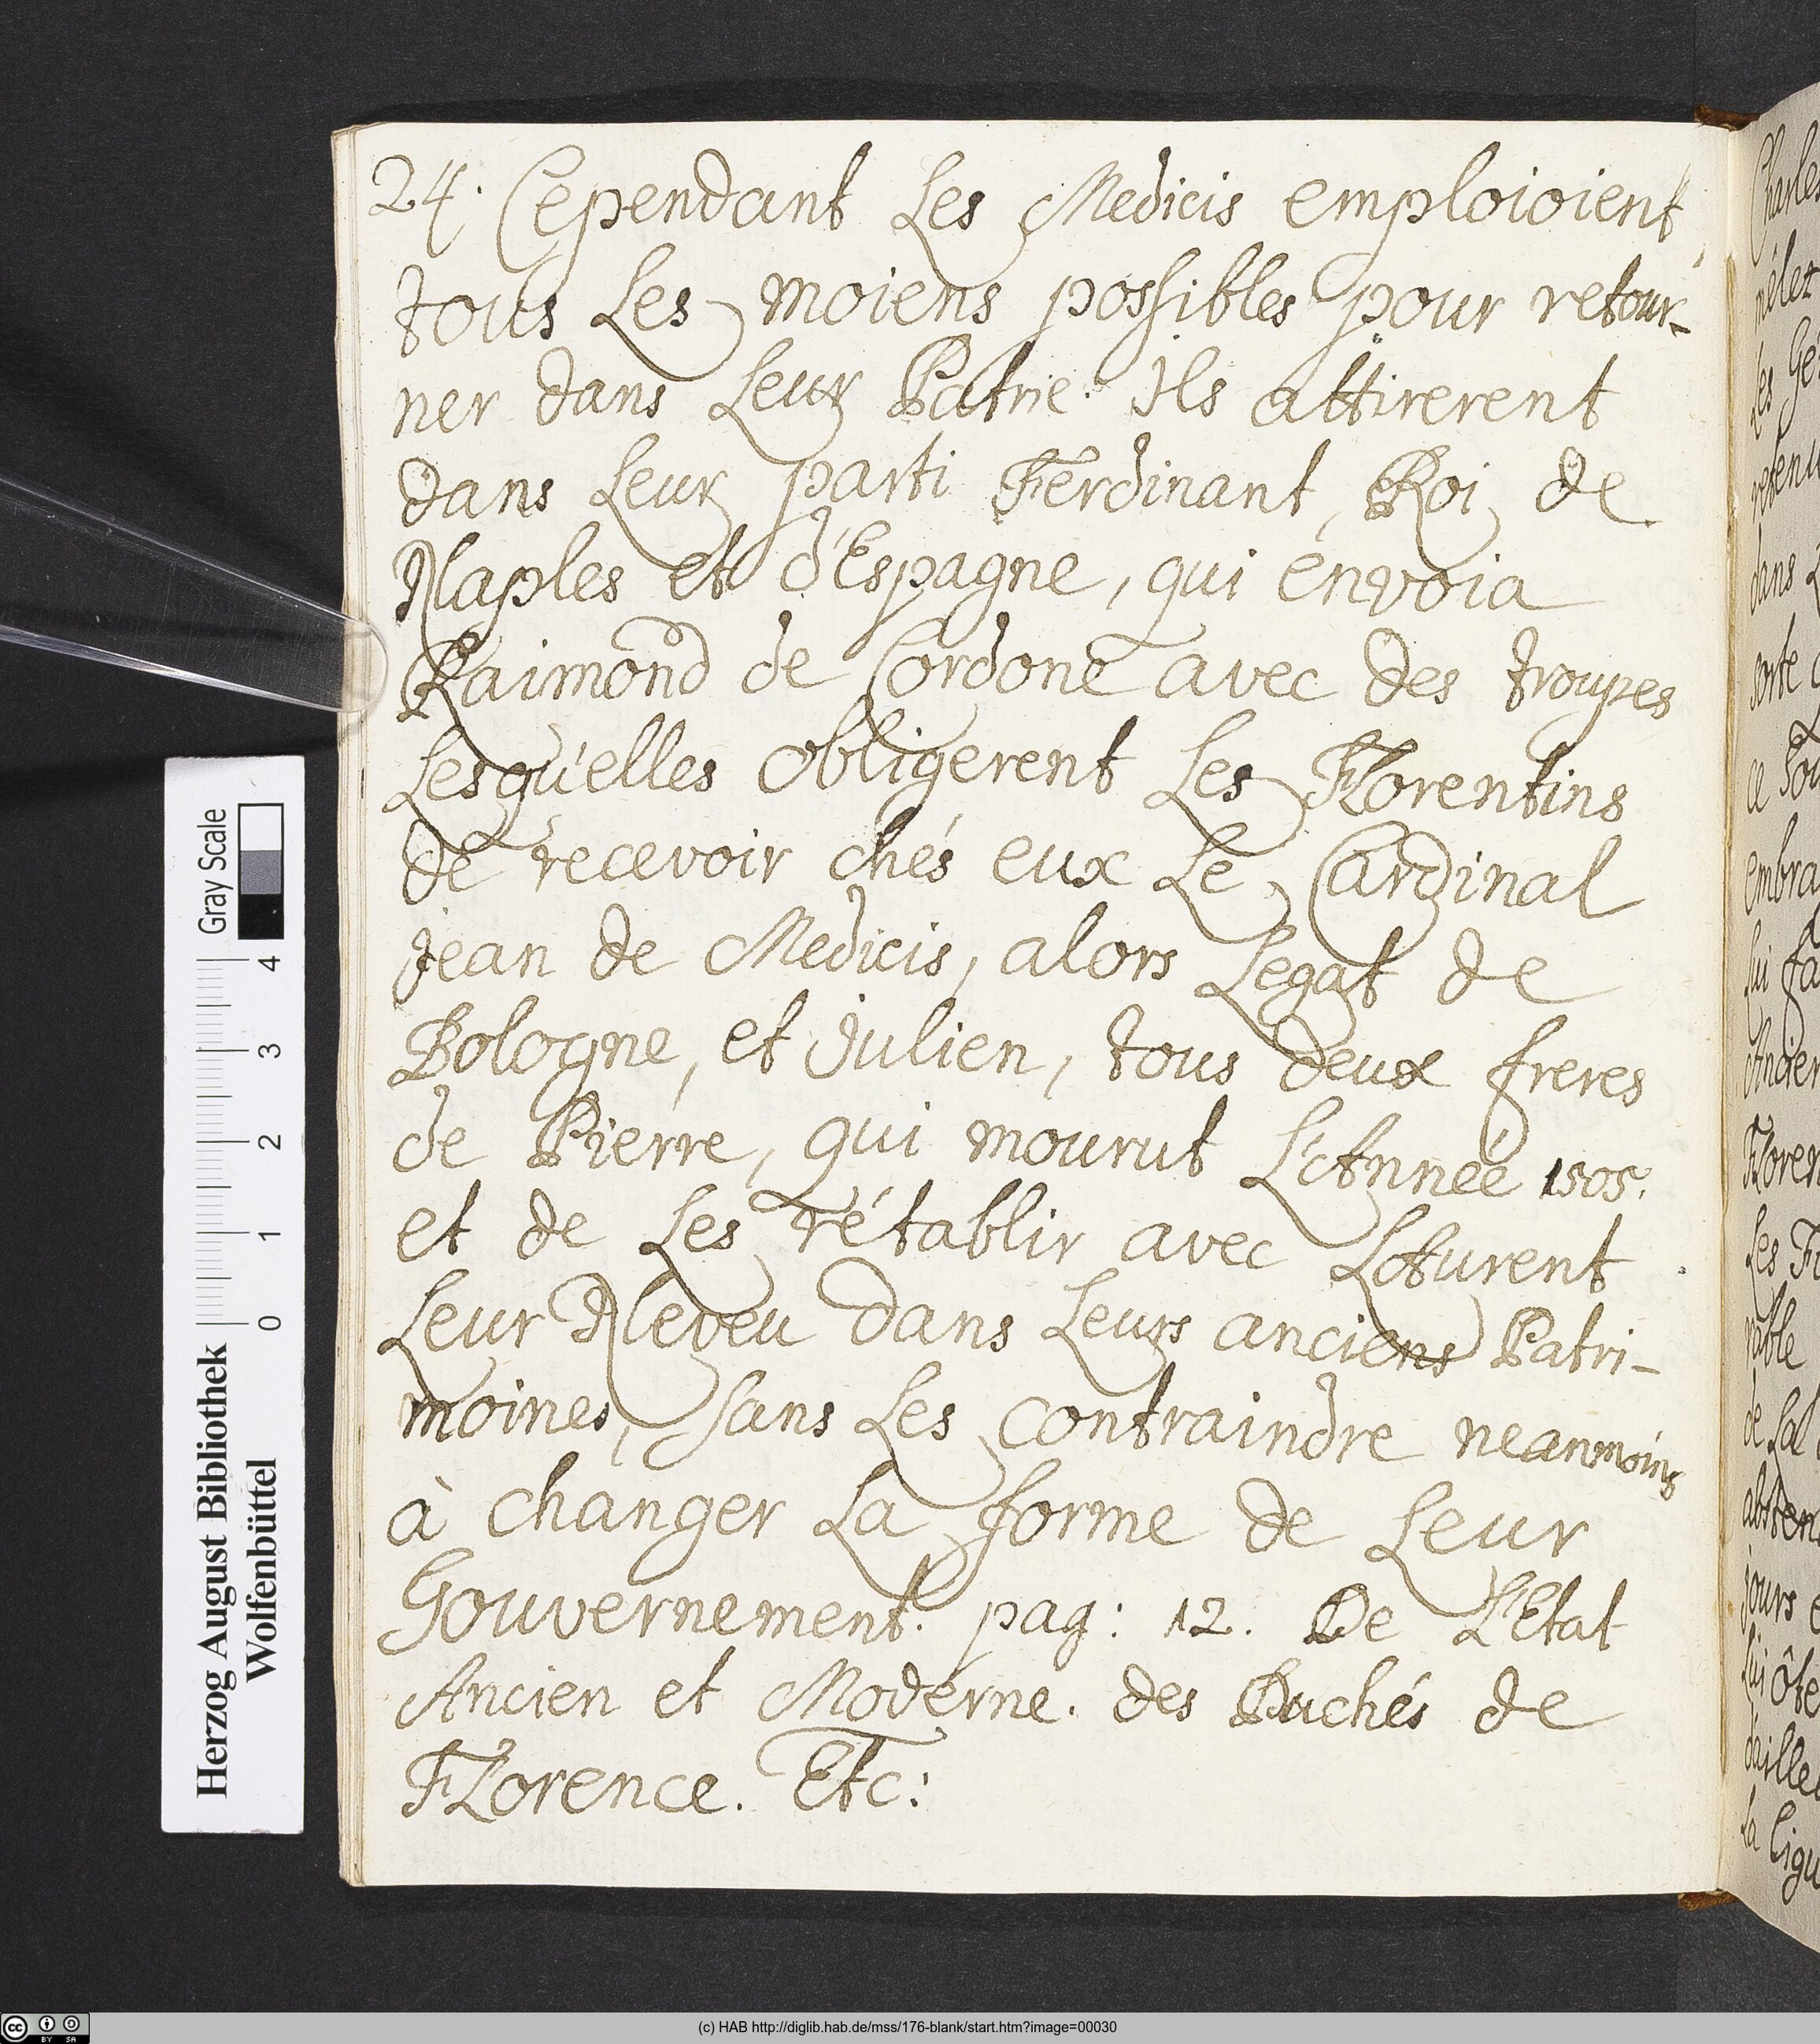 24. Cependant Les Medicis emploioient,
tous Les moiens possibles pour retour-
ner dans Leur Patrie. Ils attirerent
dans Leur parti Ferdinant, Roi de
Naples et d'Espagne, qui énvoia
Raimond de Cordone avec des troupes
Lesqu'elles obligerent Les Florentins
de recevoir chés eux Le Cardinal
jean de Medicis, alors Legat de
Bologne, et Julien, tous deux freres
de Piérre, qui mourut L'Année 1505.
et de Les rétablir avec LAurent
Leur Neveu dans Leurs anciens Patri-
moines, sans Les contraindre neanmoins
à changer La forme de Leur
Gouvernement. pag: 12. De L'Etat
Ancien et Moderne. des Duchés de
FLorence. Etc:
Gray Scale
4 3 2 1 0
Herzog August Bibliothek
Wolfenbüttel
ce
embra
Floren
Les F
de La
jours
La Ligu
cc BY SA
(c) HAB http://diglib.hab.de/mss/176-blank/start.htm?image=00030